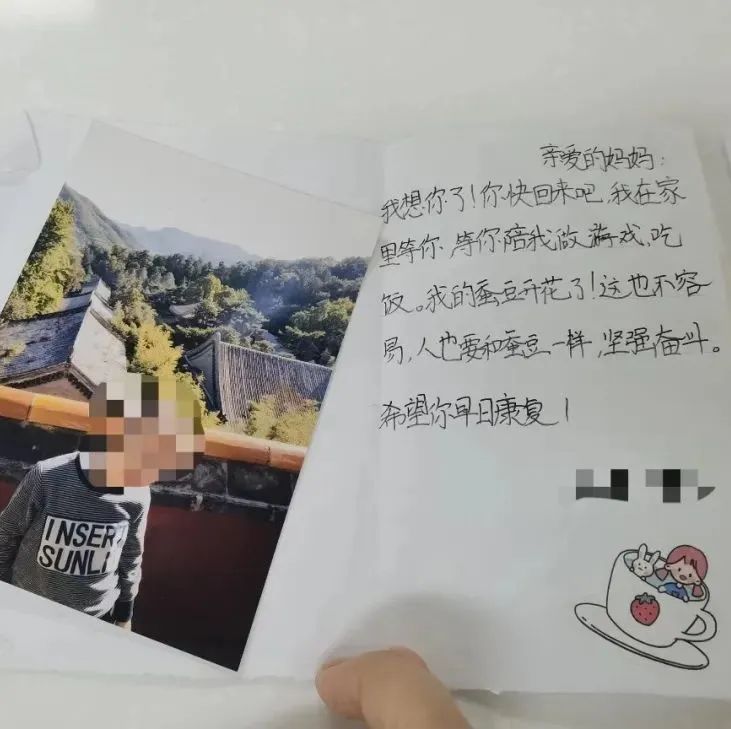 INSERT
SUNLI
亲爱的妈妈:
我想你了!你快回来吧,我在家
里等你,等你陪我做游戏,吃
饭。我的蚕豆开花了!这也不容
易,人也要和蚕豆一样,坚强奋斗。
希望你早日康复!